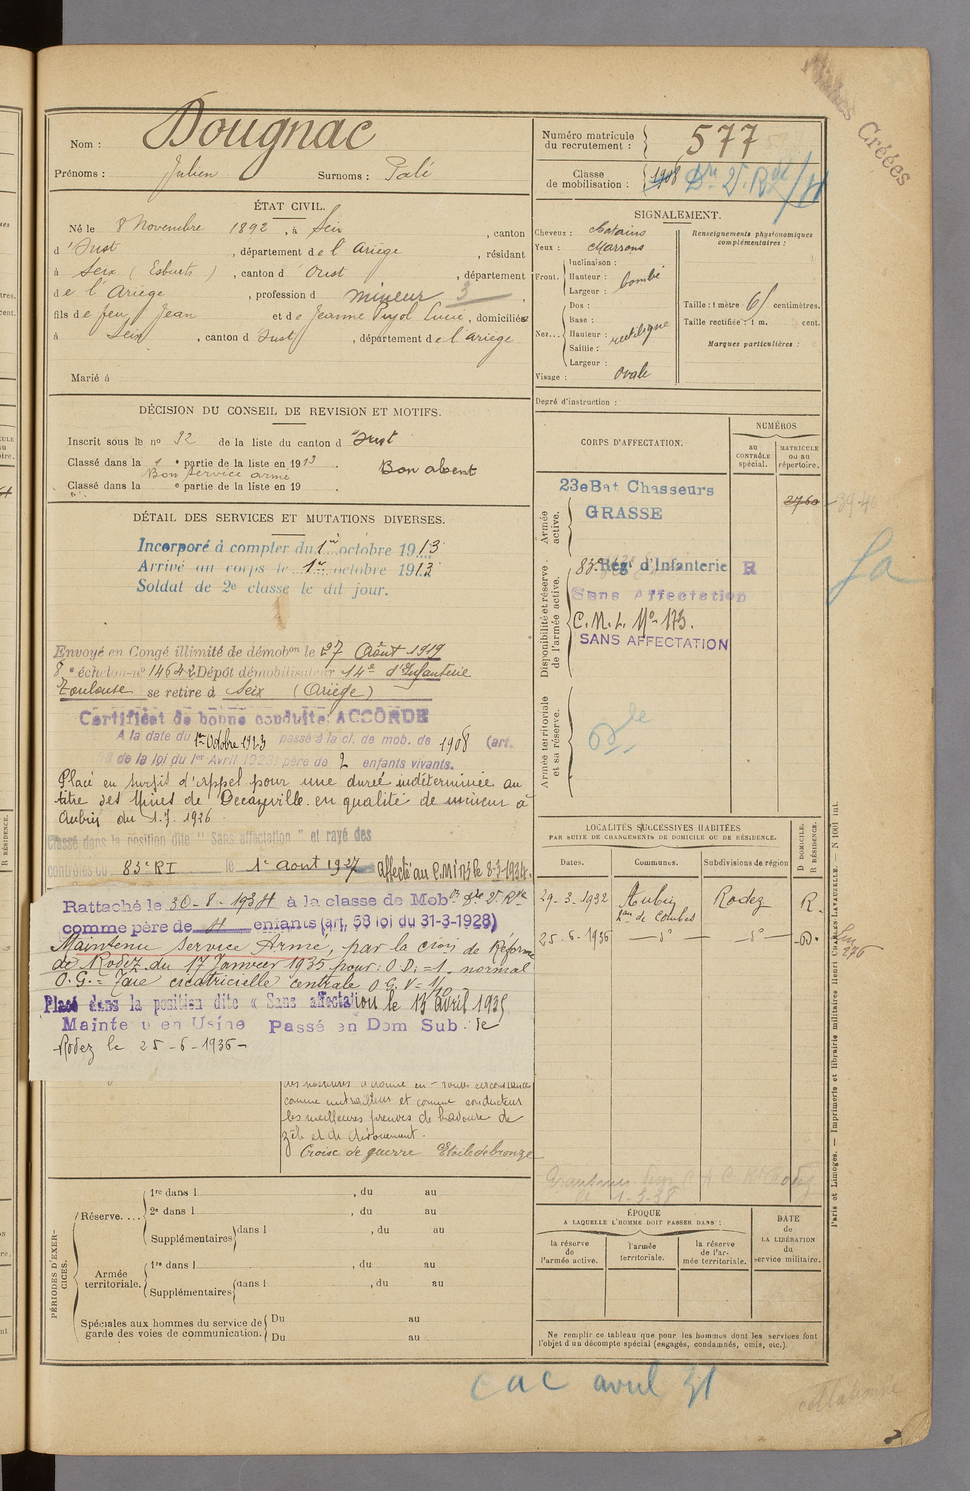 Nom : Dougnac
Prénoms : Julien Surnoms : Palé
ÉTAT CIVIL.
Né le 8 Novembre 1892, à Seix, canton
d'Oust, département de l'Ariège, résidant
à Seix (Esbints), canton d'Oust, département
de l'Ariège, profession d mineur 3
fils de feu Jean et de Jeanne Pujol Lucie, domiciliée
à Seix, canton d'Oust, département de l'Ariège
Marié à
DÉCISION DU CONSEIL DE REVISION ET MOTIFS.
Inscrit sous le no 32 de la liste du canton d'Oust
Classé dans la 1e partie de la liste en 1913. Bon absent
Bon service armé
Classé dans la e partie de la liste en 19 .
DÉTAIL DES SERVICES ET MUTATIONS DIVERSES.
Incorporé à compter du 1er octobre 1913
Arrivé au corps le 1er octobre 1913
Soldat de 2e classe le dit jour.
Envoyé en Congé illimité de démobon le 27 Août 1919
8e échelon no 14642 Dépôt démobilisateur 14e d'Infanterie
Toulouse se retire à Seix (Ariège)
Certificat de bonne conduite: ACCORDÉ
A la date du 1er Octobre 1923 passé à la cl. de mob. de 1908 (art.
58 de la loi du 1er Avril 1923) père de 2 enfants vivants.
Placé en sursis d'appel pour une durée indéterminée au
titre des Mines de Decazeville en qualité de mineur à
Aubin du 1.7.1926
Classé dans la position dite "Sans affectation" et rayé des
contrôles du 83e RI le 1er aout 1927 affecté au C.M. 173 le 8-3-1934.
Rattaché le 30-8-1934 à la classe de Mobon Dre 2e Rve
comme père de 4 enfants (art. 58 loi du 31-3-1928)
Maintenu service Armé, par la cion de Réforme
de Rodez du 17 Janvier 1935 pour : O.D. = 1. normal
O.G. = Taie cicatricielle centrale O G V = 1/10
Placé dans la position dite « Sans affectation le 13 avril 1935
Maintenu en Usine Passé en Dom Sub. de
Rodez le 25-6-1936
comme mitrailleur et comme conducteur
les meilleures preuves de bravoure de
zèle et de dévouement.
Croix de guerre Etoile de bronze
PÉRIODES D'EXERCICES.
Réserve....
1re dans l , du au
2e dans l , du au
Supplémentaires dans l , du au
Armée territoriale.
1re dans l , du au
Supplémentaires dans l , du au
Spéciales aux hommes du service de garde des voies de communication.
Du au
Du au
Numéro matricule du recrutement : 577
Classe de mobilisation : 1908 Dre 2e Rde /4
SIGNALEMENT.
Cheveux : Chatains
Yeux : Marrons
Front.
Inclinaison :
Hauteur : bombé
Largeur :
Nez...
Dos :
Base :
Hauteur : rectiligne
Saillie :
Largeur :
Visage : Ovale
Renseignements physionomiques complémentaires :
Taille : 1 mètre 61 centimètres.
Taille rectifiée : 1 m. cent.
Marques particulières :
Degré d'instruction :
CORPS D'AFFECTATION.
NUMÉROS
AU CONTRÔLE spécial.
MATRICULE ou au répertoire.
Armée active.
23e Bat Chasseurs 2760
GRASSE
Disponibilité et réserve de l'armée active.
83e Régt d'Infanterie R
Sans Affectation
C.M.L. No 173.
SANS AFFECTATION
Armée territoriale et sa réserve.
LOCALITÉS SUCCESSIVES HABITÉES
PAR SUITE DE CHANGEMENTS DE DOMICILE OU DE RÉSIDENCE.
Dates. Communes. Subdivisions de région D DOMICILE. R RÉSIDENCE.
29-3-1932 Aubin Rodez R.
de Combes
25-6-1936 — do — — do — D.
ÉPOQUE
A LAQUELLE L'HOMME DOIT PASSER DANS :
la réserve de l'armée active.
l'armée territoriale.
la réserve de l'armée territoriale.
DATE de LA LIBÉRATION du service militaire.
Ne remplir ce tableau que pour les hommes dont les services font
l'objet d'un décompte spécial (engagés, condamnés, omis, etc.).
Paris et Limoges. — Imprimerie et librairie militaires Henri CHARLES-LAVAUZELLE. — N 1001 int.
CAC avril 41
Créées